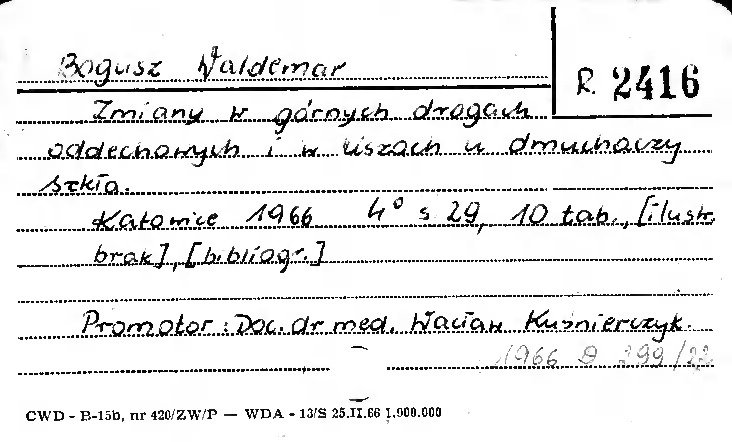 Bogusz Waldemar
R. 2416
Zmiany w górnych drogach
oddechowych i w uszach u dmuchaczy
szkła.
Katowice 1966 4° s 29, 10 tab., [ilustr.
brak], [bibliogr.]
Promotor: Doc. dr med. Wacław Kuśnierczyk.
1966 D 299/22
CWD - B-15b, nr 420/ZW/P — WDA - 13/S 25.II.66 1.000.000